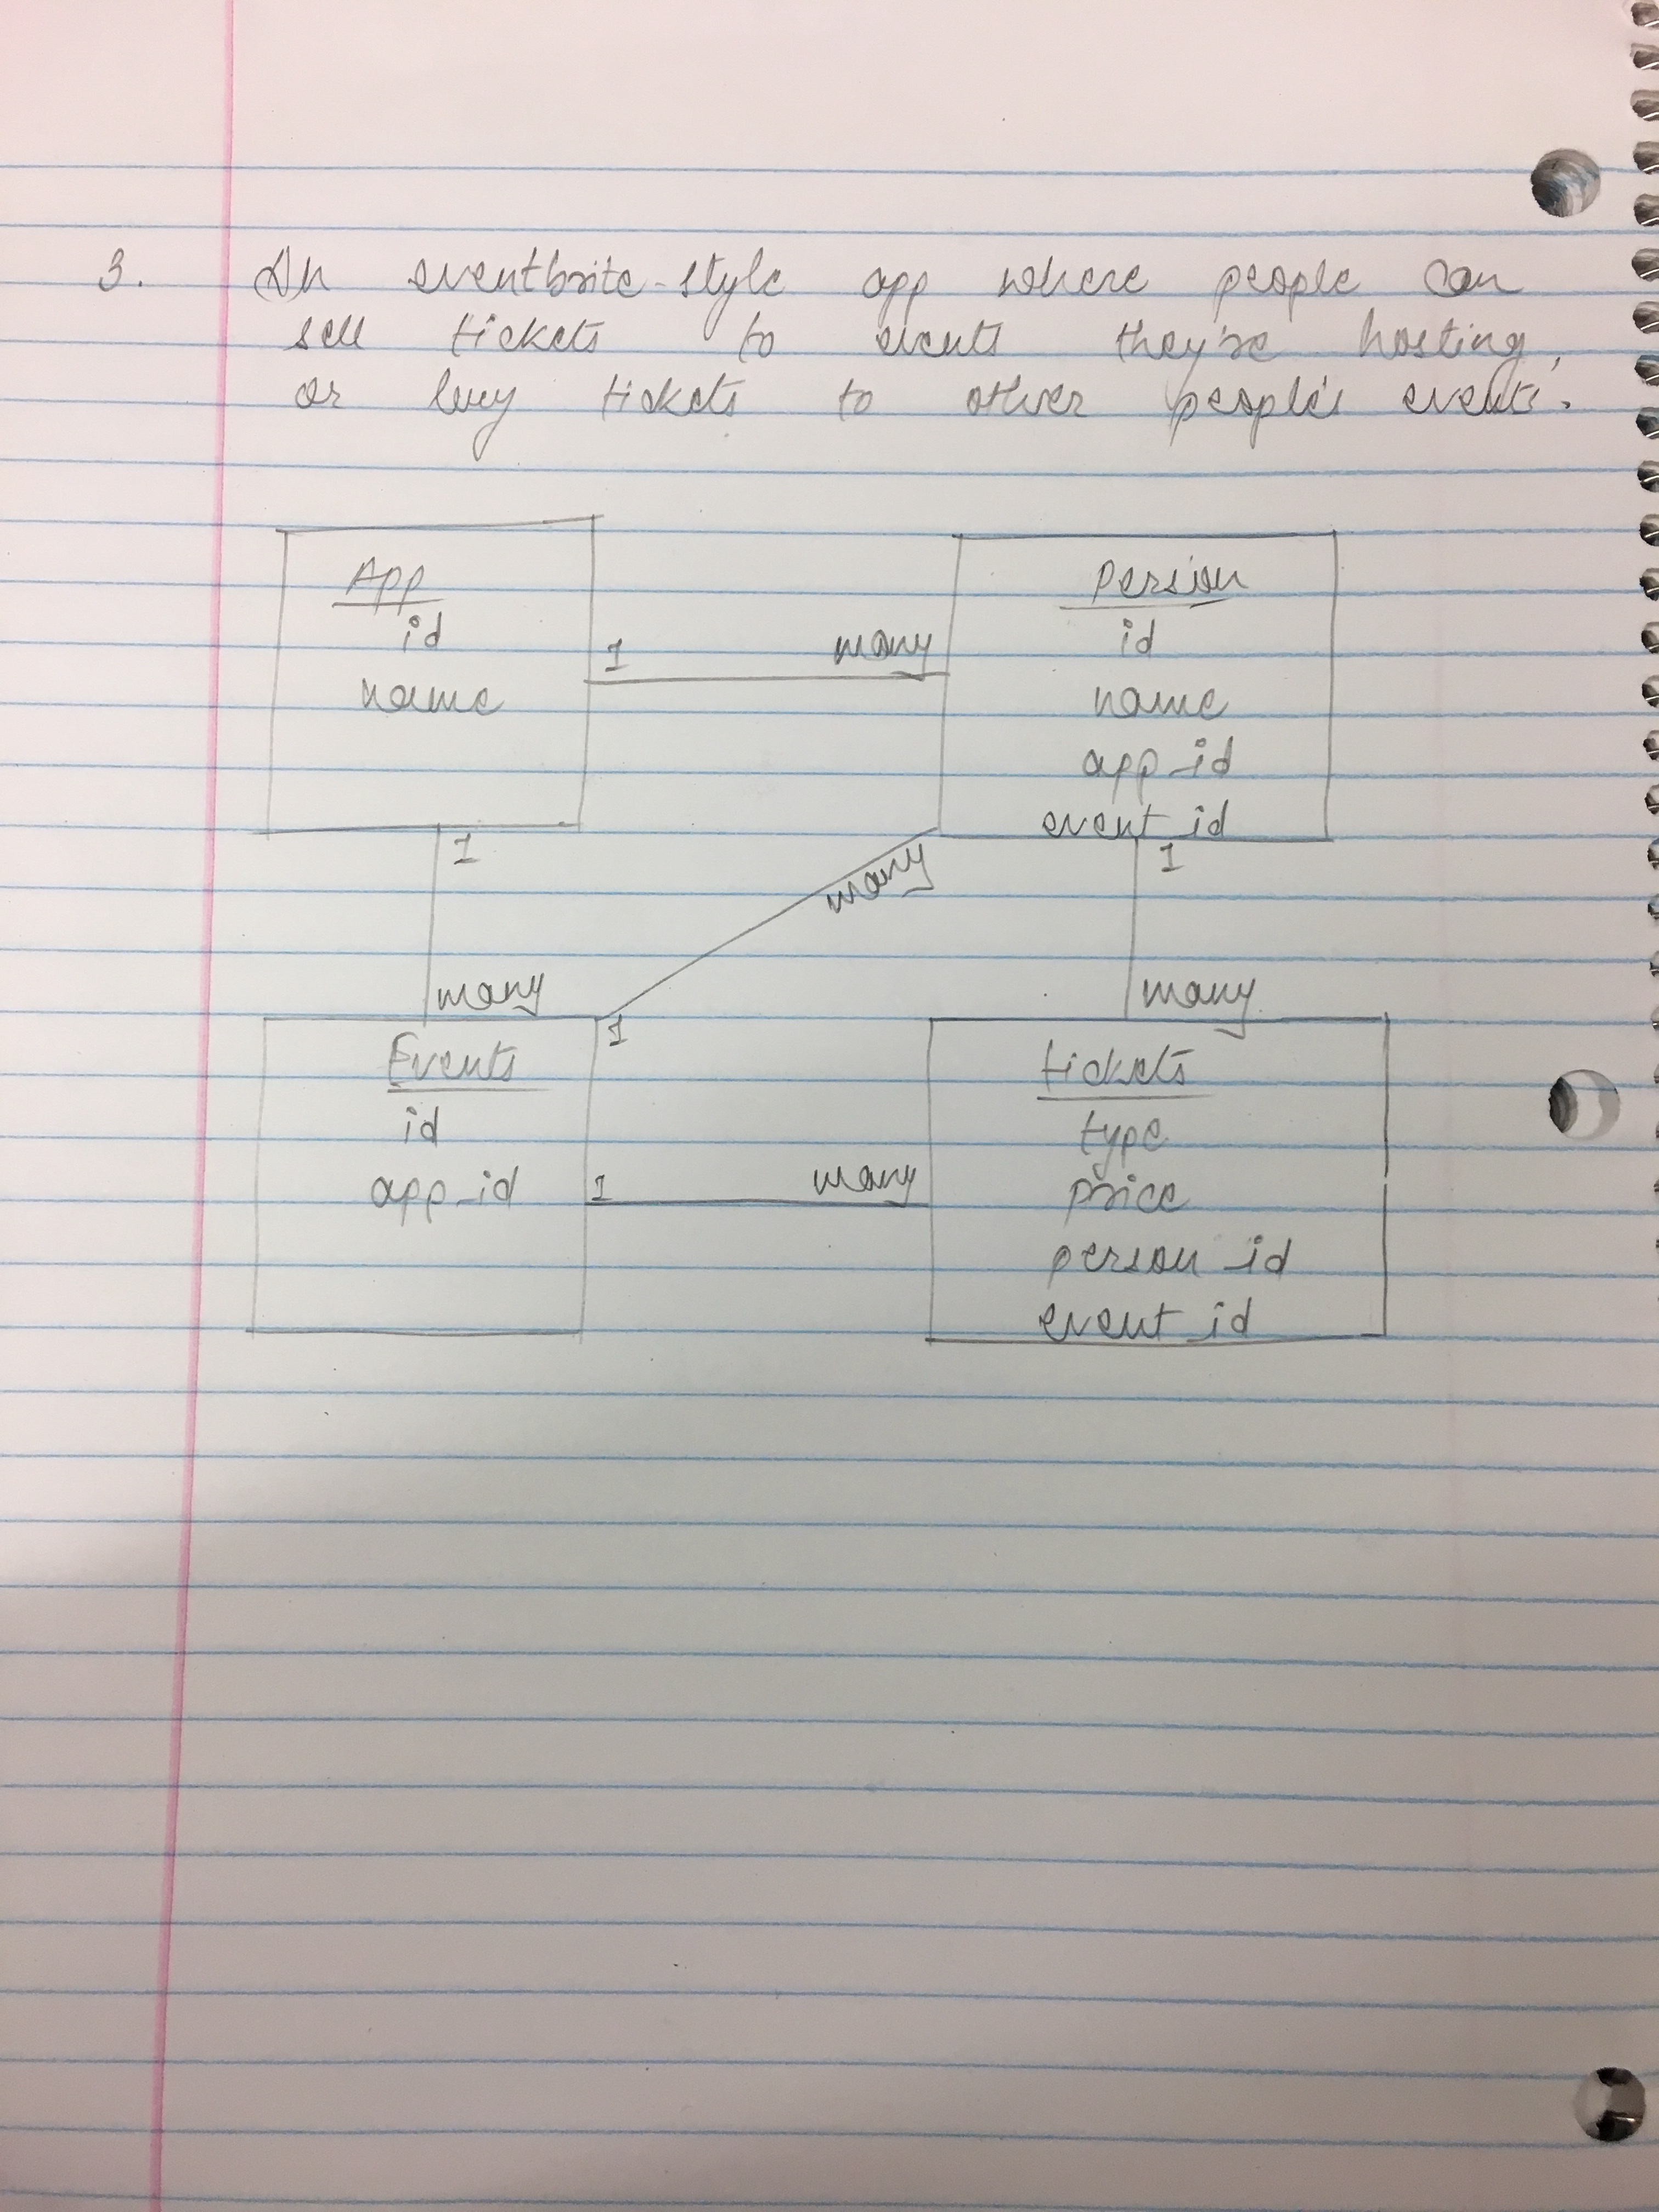 3. An eventbrite-style app where people can
sell tickets to events they're hosting,
or buy tickets to other people's events.
App
id
name
1 many
Person
id
name
app_id
event_id
1
many
many
1
1
many
Events
id
app_id
1 many
tickets
type
price
person_id
event_id